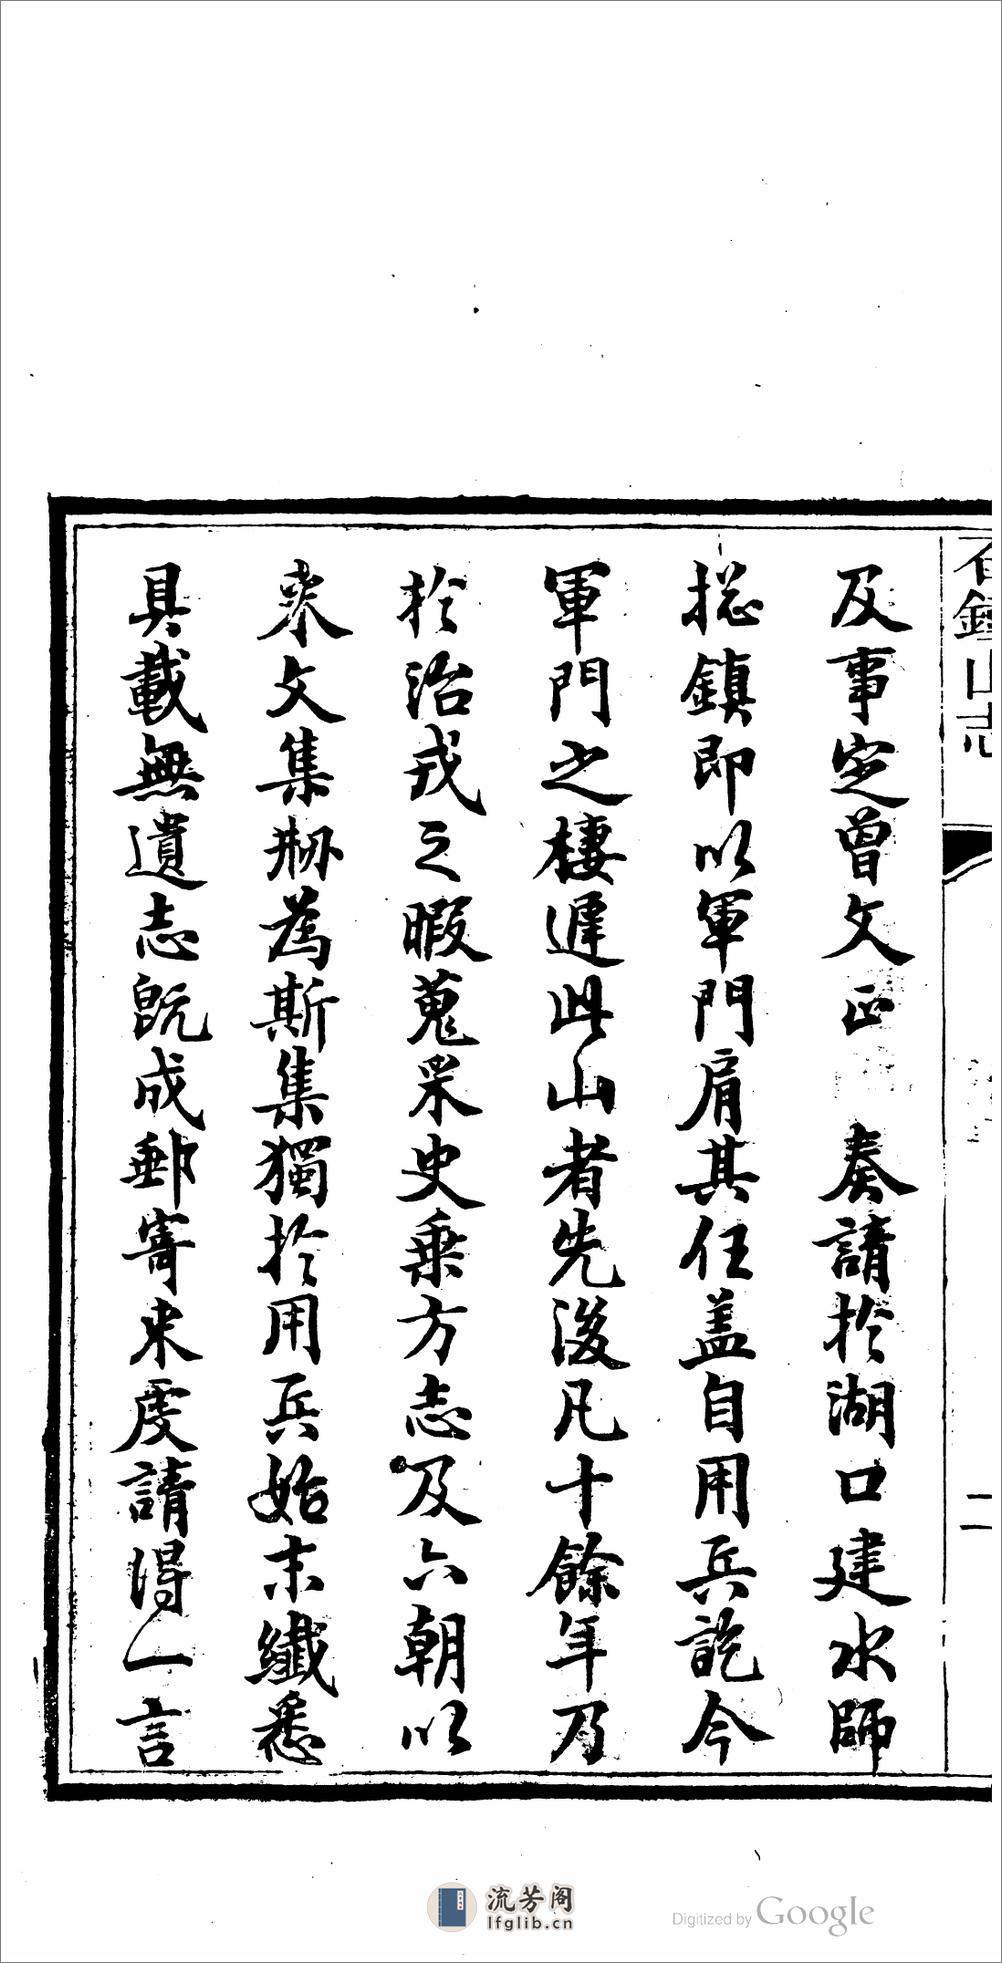 石鍾山志
二
及事定曾文正　奏請於湖口建水師
揔鎮即以軍門肩其任蓋自用兵訖今
軍門之棲遲此山者先後凡十餘年乃
於治戎之暇蒐采史乘方志及六朝以
來文集刱為斯集獨於用兵始末纖悉
具載無遺志既成郵寄来虔請得一言
流芳阁
lfglib.cn
Digitized by Google